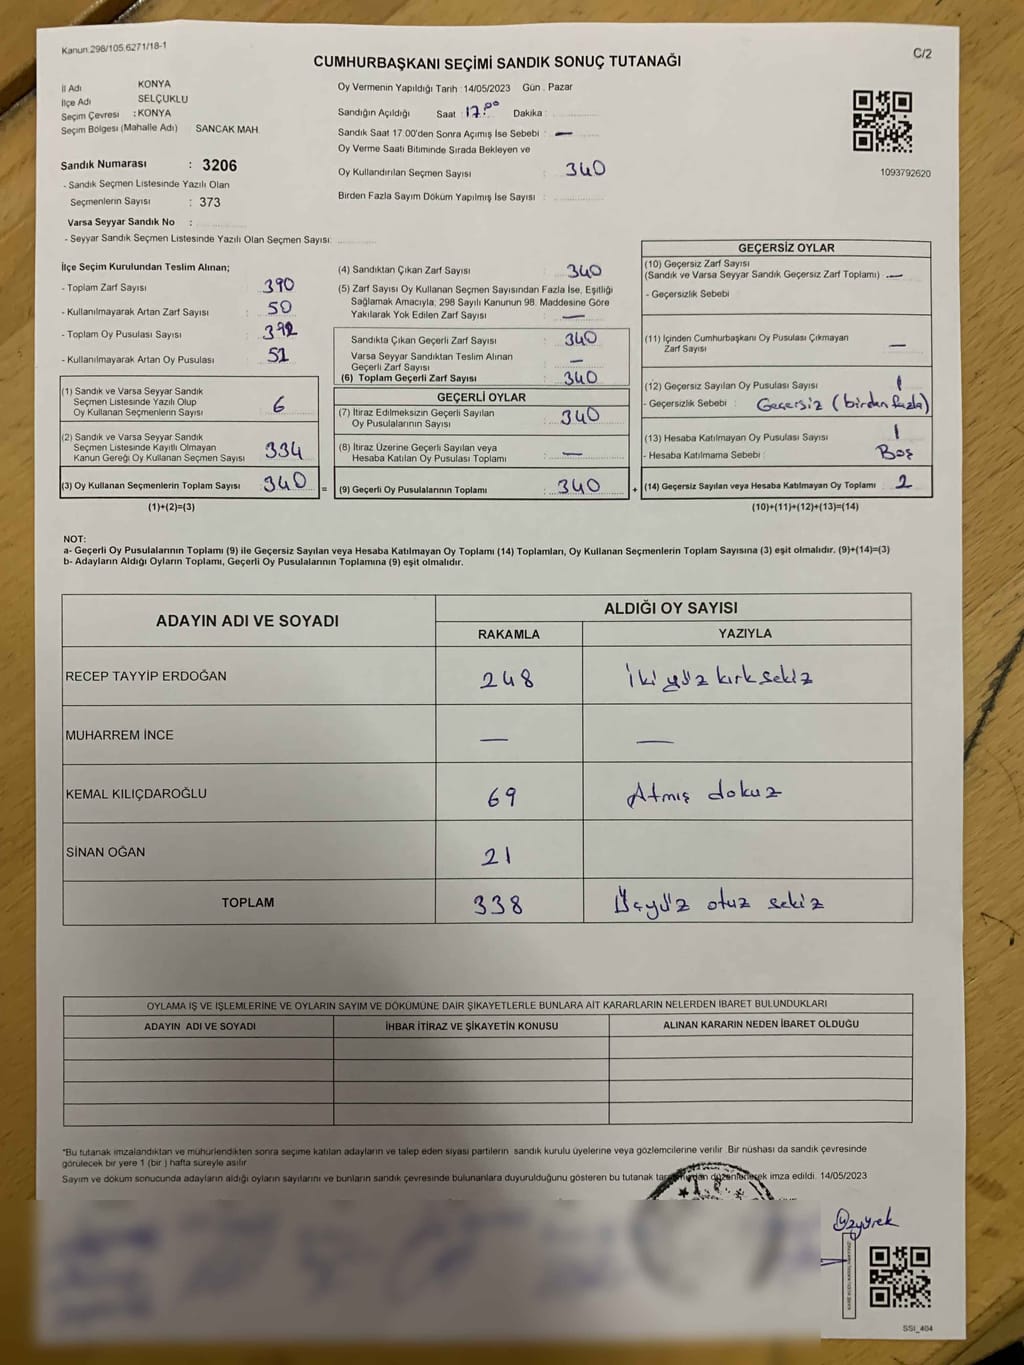 Kanun.298/105.6271/18-1
C/2
CUMHURBAŞKANI SEÇİMİ SANDIK SONUÇ TUTANAĞI
İl Adı KONYA
İlçe Adı SELÇUKLU
Seçim Çevresi : KONYA
Seçim Bölgesi (Mahalle Adı) SANCAK MAH.
Sandık Numarası : 3206
- Sandık Seçmen Listesinde Yazılı Olan
Seçmenlerin Sayısı : 373
Varsa Seyyar Sandık No :
- Seyyar Sandık Seçmen Listesinde Yazılı Olan Seçmen Sayısı:
Oy Vermenin Yapıldığı Tarih : 14/05/2023 Gün . Pazar
Sandığın Açıldığı Saat : 17:00 Dakika :
Sandık Saat 17.00'den Sonra Açımış İse Sebebi : —
Oy Verme Saati Bitiminde Sırada Bekleyen ve
Oy Kullandırılan Seçmen Sayısı : 340
Birden Fazla Sayım Döküm Yapılmış İse Sayısı :
1093792620
İlçe Seçim Kurulundan Teslim Alınan;
- Toplam Zarf Sayısı 390
- Kullanılmayarak Artan Zarf Sayısı 50
- Toplam Oy Pusulası Sayısı 392
- Kullanılmayarak Artan Oy Pusulası 51
(1) Sandık ve Varsa Seyyar Sandık
Seçmen Listesinde Yazılı Olup
Oy Kullanan Seçmenlerin Sayısı 6
(2) Sandık ve Varsa Seyyar Sandık
Seçmen Listesinde Kayıtlı Olmayan
Kanun Gereği Oy Kullanan Seçmen Sayısı 334
(3) Oy Kullanan Seçmenlerin Toplam Sayısı 340 =
(1)+(2)=(3)
(4) Sandıktan Çıkan Zarf Sayısı : 340
(5) Zarf Sayısı Oy Kullanan Seçmen Sayısından Fazla İse, Eşitliği
Sağlamak Amacıyla, 298 Sayılı Kanunun 98. Maddesine Göre
Yakılarak Yok Edilen Zarf Sayısı : —
Sandıkta Çıkan Geçerli Zarf Sayısı : 340
Varsa Seyyar Sandıktan Teslim Alınan
Geçerli Zarf Sayısı : —
(6) Toplam Geçerli Zarf Sayısı : 340
GEÇERLİ OYLAR
(7) İtiraz Edilmeksizin Geçerli Sayılan
Oy Pusulalarının Sayısı : 340
(8) İtiraz Üzerine Geçerli Sayılan veya
Hesaba Katılan Oy Pusulası Toplamı : —
(9) Geçerli Oy Pusulalarının Toplamı : 340 +
GEÇERSİZ OYLAR
(10) Geçersiz Zarf Sayısı
(Sandık ve Varsa Seyyar Sandık Geçersiz Zarf Toplamı) : —
- Geçersizlik Sebebi
(11) İçinden Cumhurbaşkanı Oy Pusulası Çıkmayan
Zarf Sayısı —
(12) Geçersiz Sayılan Oy Pusulası Sayısı 1
- Geçersizlik Sebebi : Geçersiz (birden fazla)
(13) Hesaba Katılmayan Oy Pusulası Sayısı 1
- Hesaba Katılmama Sebebi : Boş
(14) Geçersiz Sayılan veya Hesaba Katılmayan Oy Toplamı 2
(10)+(11)+(12)+(13)=(14)
NOT:
a- Geçerli Oy Pusulalarının Toplamı (9) ile Geçersiz Sayılan veya Hesaba Katılmayan Oy Toplamı (14) Toplamları, Oy Kullanan Seçmenlerin Toplam Sayısına (3) eşit olmalıdır. (9)+(14)=(3)
b- Adayların Aldığı Oyların Toplamı, Geçerli Oy Pusulalarının Toplamına (9) eşit olmalıdır.
ADAYIN ADI VE SOYADI
ALDIĞI OY SAYISI
RAKAMLA YAZIYLA
RECEP TAYYİP ERDOĞAN 248 İki yüz kırk sekiz
MUHARREM İNCE — —
KEMAL KILIÇDAROĞLU 69 Atmış dokuz
SİNAN OĞAN 21
TOPLAM 338 Üçyüz otuz sekiz
OYLAMA İŞ VE İŞLEMLERİNE VE OYLARIN SAYIM VE DÖKÜMÜNE DAİR ŞİKAYETLERLE BUNLARA AİT KARARLARIN NELERDEN İBARET BULUNDUKLARI
ADAYIN ADI VE SOYADI İHBAR İTİRAZ VE ŞİKAYETİN KONUSU ALINAN KARARIN NEDEN İBARET OLDUĞU
*Bu tutanak imzalandıktan ve mühürlendikten sonra seçime katılan adayların ve talep eden siyasi partilerin sandık kurulu üyelerine veya gözlemcilerine verilir. Bir nüshası da sandık çevresinde
görülecek bir yere 1 (bir) hafta süreyle asılır
Sayım ve döküm sonucunda adayların aldığı oyların sayılarını ve bunların sandık çevresinde bulunanlara duyurulduğunu gösteren bu tutanak düzenlenerek imza edildi. 14/05/2023
SSI_404